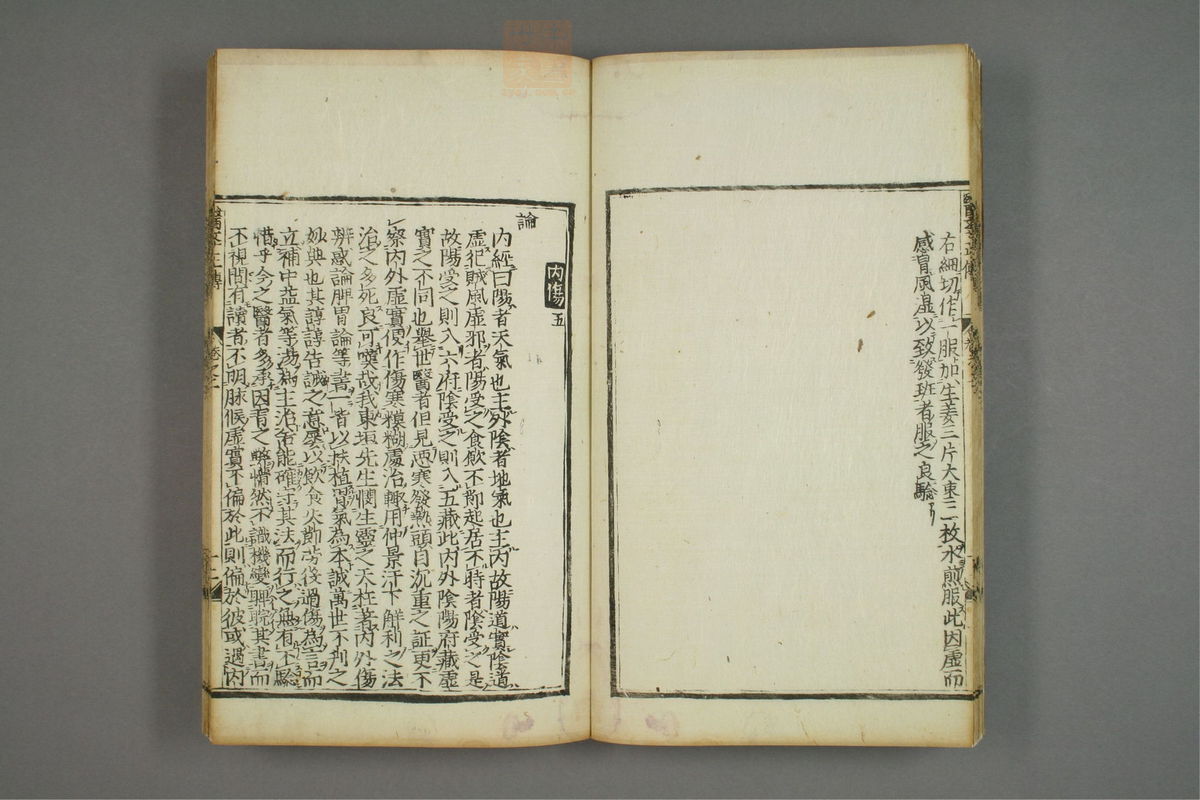 右細切作一服加生姜三片大棗二枚水煎服此因虛而
感冒風濕以致發班者服之良驗
內傷 五
論
內經曰陽者天氣也主外陰者地氣也主內故陽道實陰道
虛犯賊風虛邪者陽受之食飲不節起居不時者陰受之是
故陽受之則入六府陰受之則入五藏此內外陰陽府藏虛
實之不同也舉世醫者但見惡寒發熱頭目沉重之証更不
察內外虛實便作傷寒糢糊處治輙用仲景汗下解利之法
治之多死良可嘆哉我東垣先生憫生靈之夭枉著內外傷
辨惑論脾胃論等書一皆以扶植胃氣為本誠萬世不刋之
妙典也其諄諄告誡之意屢以飲食失節勞役過傷為言而
立補中益氣等湯為主治舍能確守其法而行之無有不驗
惜乎今之醫者多承因盲之弊懵然不識機變聊睨其書而
不視間有讀者不明脉候虛實不偏於此則偏於彼或遇內
醫至正傳
卷之二
十二